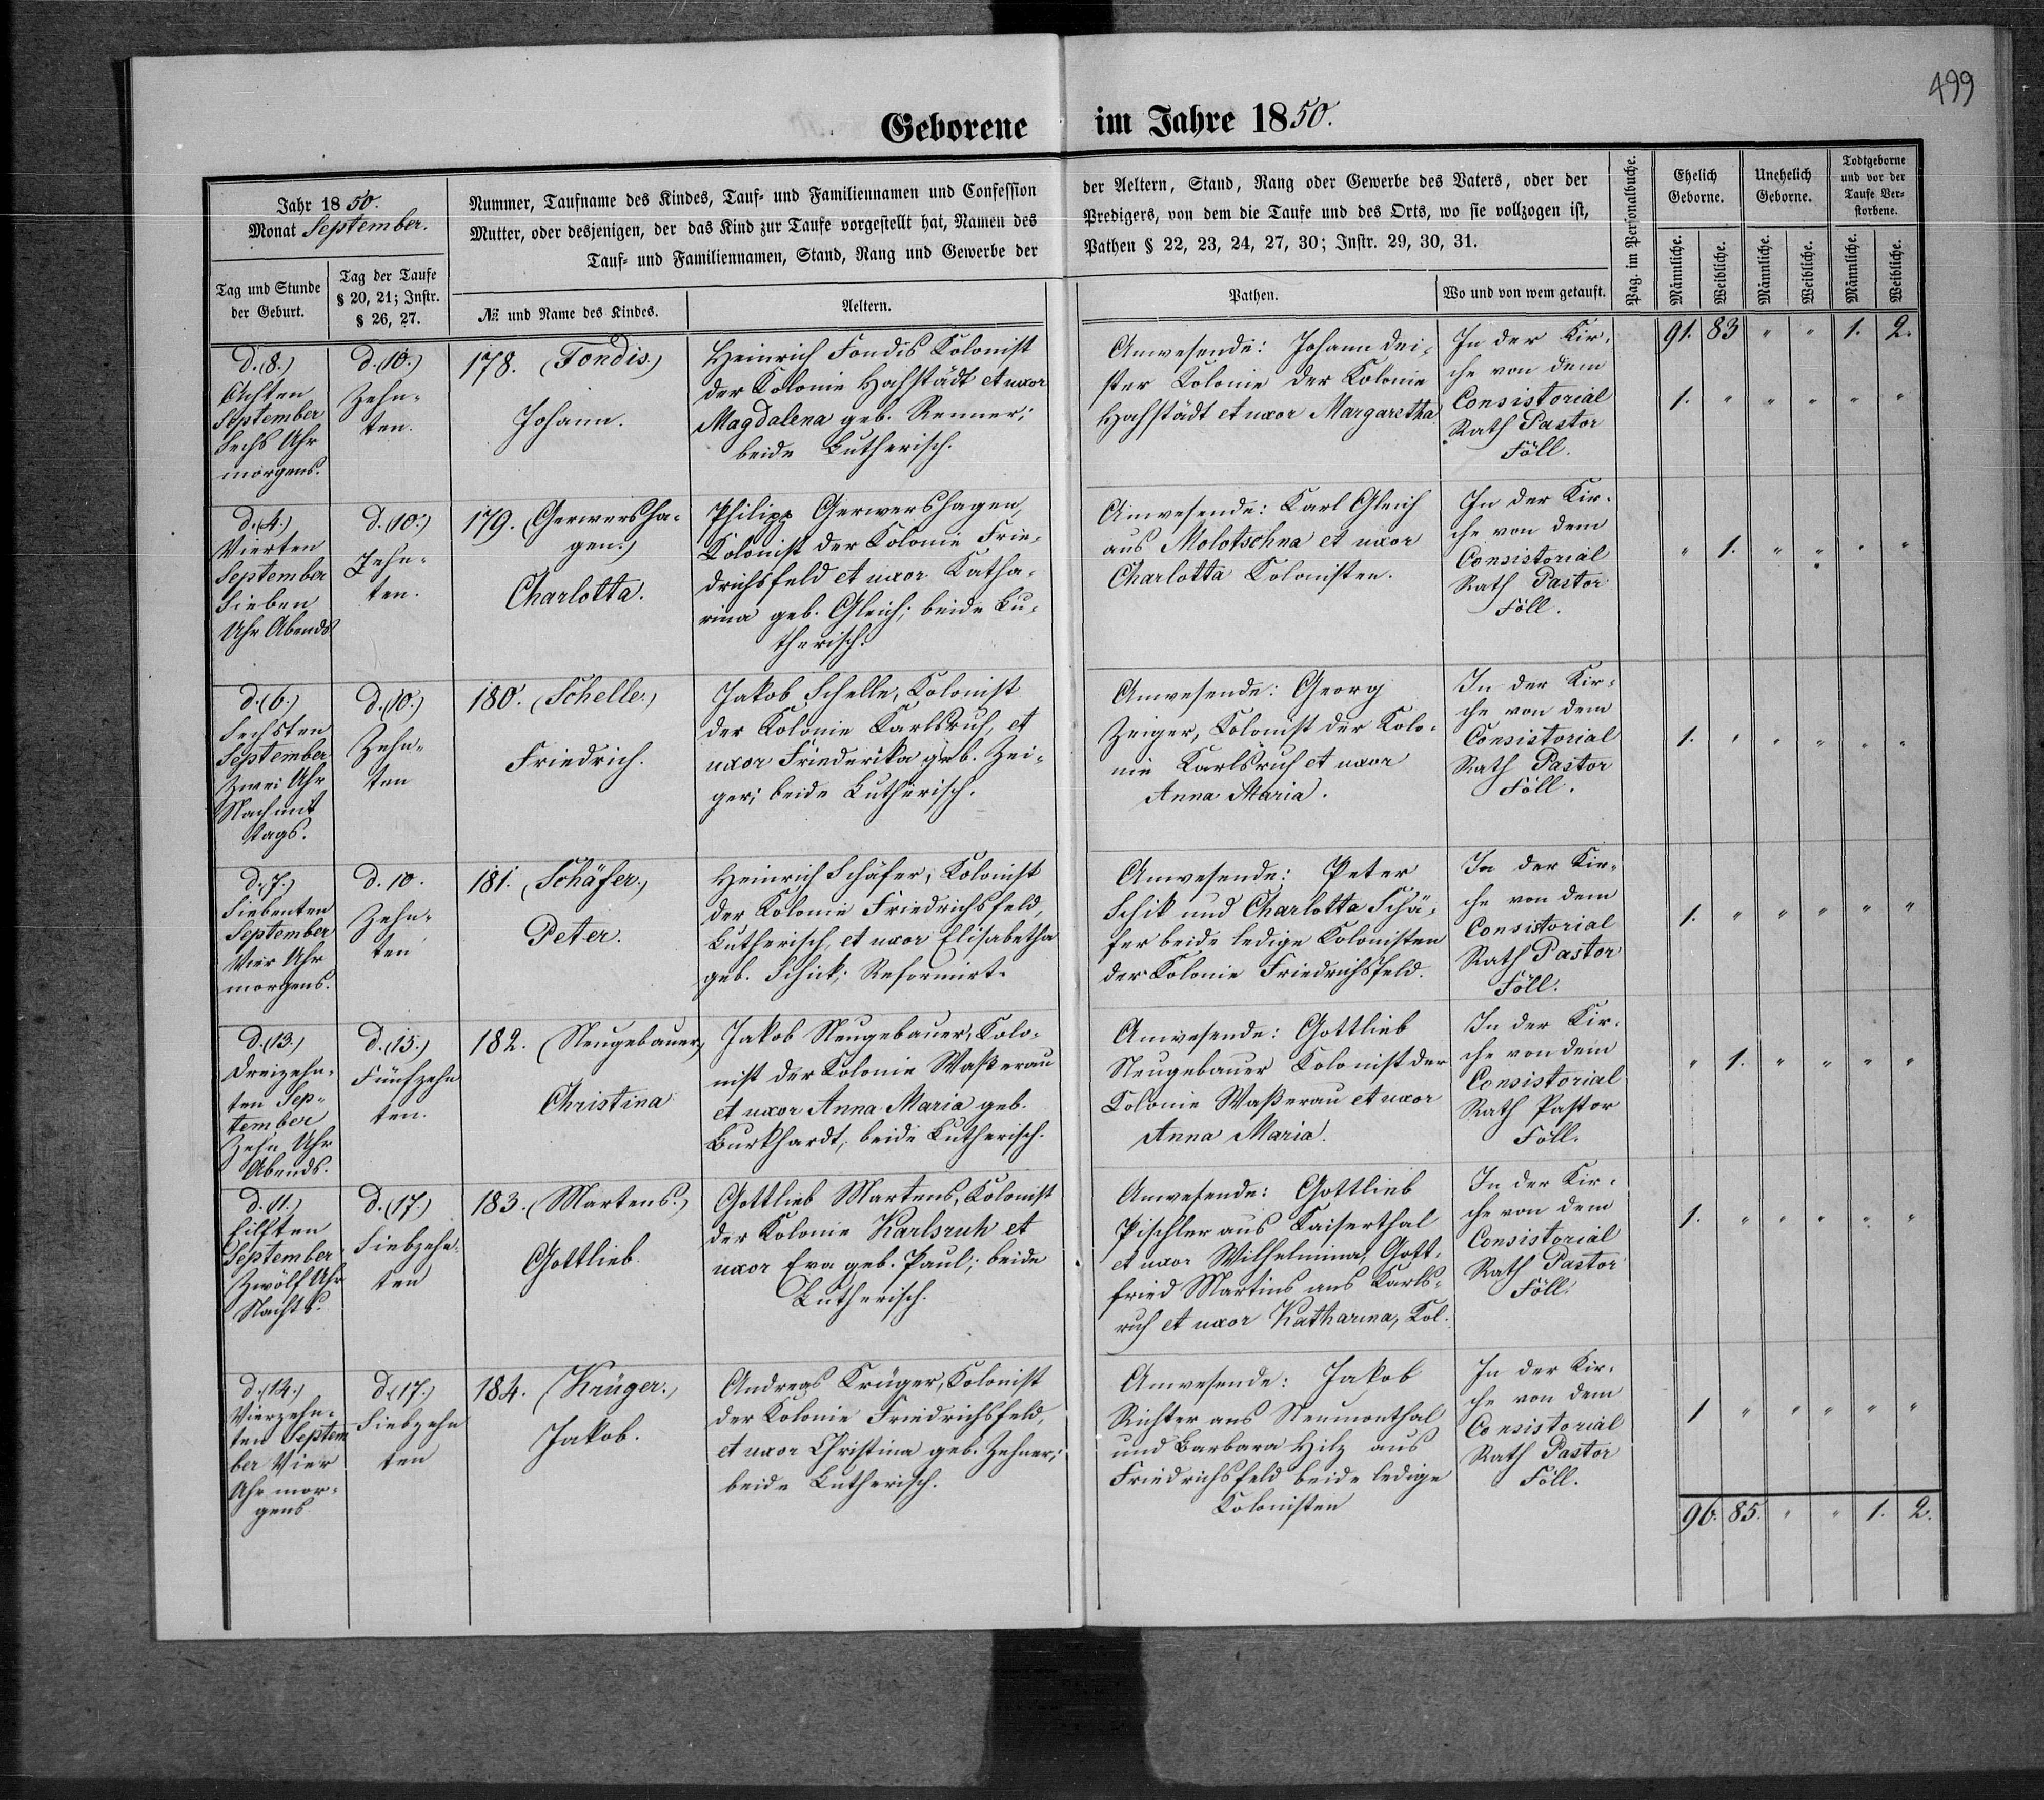 499
Geborene im Jahre 1850.
Jahr 1850.
Monat September.
Tag und Stunde
der Geburt.
Tag der Taufe
§ 20, 21; Instr.
§ 26, 27.
Nummer, Taufname des Kindes, Tauf- und Familiennamen und Confession
Mutter, oder desjenigen, der das Kind zur Taufe vorgestellt hat, Namen des
Tauf- und Familiennamen, Stand, Rang und Gewerbe der
№ und Name des Kindes.
Aeltern.
der Aeltern, Stand, Rang oder Gewerbe des Vaters, oder der
Predigers, von dem die Taufe und des Orts, wo sie vollzogen ist,
Pathen § 22, 23, 24, 27, 30; Instr. 29, 30, 31.
Pathen.
Wo und von wem getauft.
Pag. im Personalbuche.
Ehelich
Geborne.
Unehelich
Geborne.
Todtgeborne
und vor der
Taufe Ver-
storbene.
Männliche.
Weibliche.
Männliche.
Weibliche.
Männliche.
Weibliche.
91. 83 " " 1. 2.
d. (8.)
Achten
September
Sechs Uhr
morgens.
d. (10.)
Zehn-
ten.
178. (Fondis.)
Johann.
Heinrich Fondis Kolonist
der Kolonie Hochstädt et uxor
Magdalena geb. Renner;
beide Lutherisch.
Anwesende: Johann Dei-
ster Kolonie der Kolonie
Hochstädt et uxor Margaretha
In der Kir-
che von dem
Consistorial
Rath Pastor
Föll.
1. " " " " "
d. (4.)
Vierten
September
Sieben
Uhr Abends
d. (10.)
Zehn-
ten.
179. (Gerwersha-
gen.)
Charlotta.
Philipp Gerwershagen,
Kolonist der Kolonie Frie-
drichsfeld et uxor Katha-
rina geb. Gleich; beide Lu-
therisch.
Anwesende: Karl Gleich
aus Molotschna et uxor
Charlotta Kolonisten.
In der Kir-
che von dem
Consistorial
Rath Pastor
Föll.
" 1. " " " "
d. (6.)
Sechsten
September
Zwei Uhr
Nachmit
tags.
d. (10.)
Zehn-
ten
180. (Schelle.)
Friedrich.
Jakob Schelle, Kolonist
der Kolonie Karlsruh, et
uxor Friederika geb. Zei-
ger; beide Lutherisch.
Anwesende: Georg
Zeiger, Kolonist der Kolo-
nie Karlsruh et uxor
Anna Maria.
In der Kir-
che von dem
Consistorial
Rath Pastor
Föll.
1. " " " " "
d. (7.)
Siebenten
September
Vier Uhr
morgens.
d. 10.
Zehn-
ten
181. (Schäfer.)
Peter.
Heinrich Schäfer, Kolonist
der Kolonie Friedrichsfeld,
Lutherisch, et uxor Elisabetha
geb. Schick; Reformirt.
Anwesende: Peter
Schik und Charlotta Schä-
fer beide ledige Kolonisten
der Kolonie Friedrichsfeld.
In der Kir-
che von dem
Consistorial
Rath Pastor
Föll.
1. " " " " "
d. (13.)
Dreizehn-
ten Sep-
tember
Zehn Uhr
Abends.
d. (15.)
Fünfzehn
ten.
182. (Neugebauer)
Christina
Jakob Neugebauer, Kolo-
nist der Kolonie Waßerau
et uxor Anna Maria geb.
Burkhardt, beide Lutherisch.
Anwesende: Gottlieb
Neugebauer Kolonist der
Kolonie Waßerau et uxor
Anna Maria.
In der Kir-
che von dem
Consistorial
Rath Pastor
Föll.
" 1. " " " "
d. 11.)
Eilften
September
Zwölf Uhr
Nachts.
d. (17.)
Siebzehn-
ten
183. (Martens.)
Gottlieb
Gottlieb Martens, Kolonist
der Kolonie Karlsruh et
uxor Eva geb. Paul; beide
Lutherisch.
Anwesende: Gottlieb
Pischler aus Kaiserthal
et uxor Wilhelmina, Gott-
fried Martins aus Karls-
ruh et uxor Katharina, Kol.
In der Kir-
che von dem
Consistorial
Rath Pastor
Föll.
1. " " " " "
d. (14.)
Vierzehn-
ten Septem
ber Vier
Uhr mor-
gens
d. (17.)
Siebzehn
ten
184. (Krüger.)
Jakob.
Andreas Krüger, Kolonist
der Kolonie Friedrichsfeld,
et uxor Christina geb. Zehner;
beide Lutherisch.
Anwesende: Jakob
Richter aus Neumonthal
und Barbara Hilz aus
Friedrichsfeld beide ledige
Kolonisten
In der Kir-
che von dem
Consistorial
Rath Pastor
Föll.
1 " " " " "
96. 85. " " 1. 2.